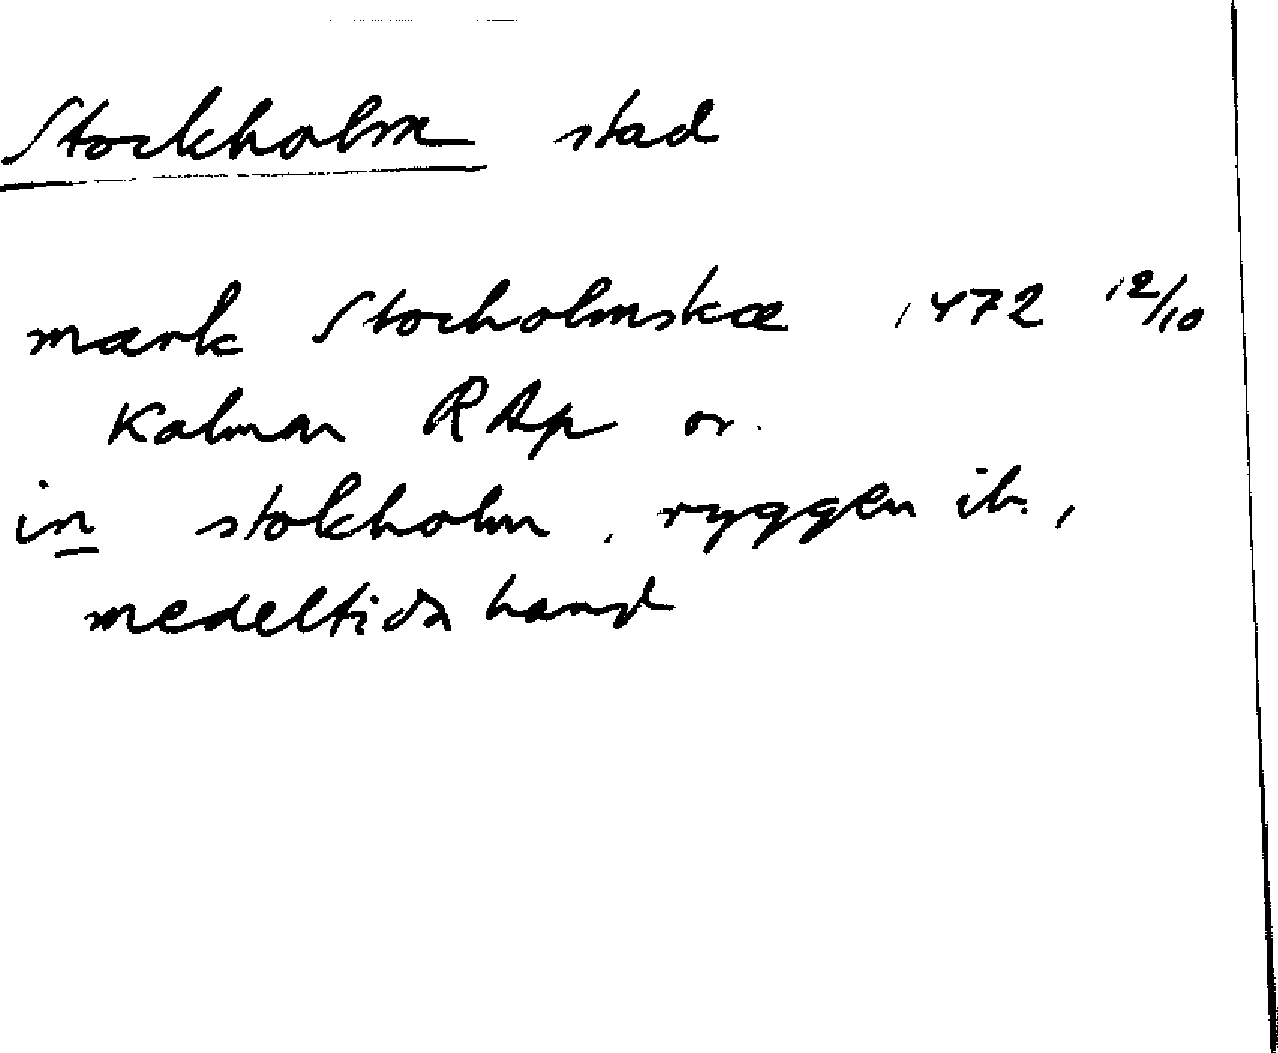 Stockholm stad
mark Stocholmskæ 1472 12/10
Kalmar RAp or.
in stokholm, ryggen ib.,
medeltida hand